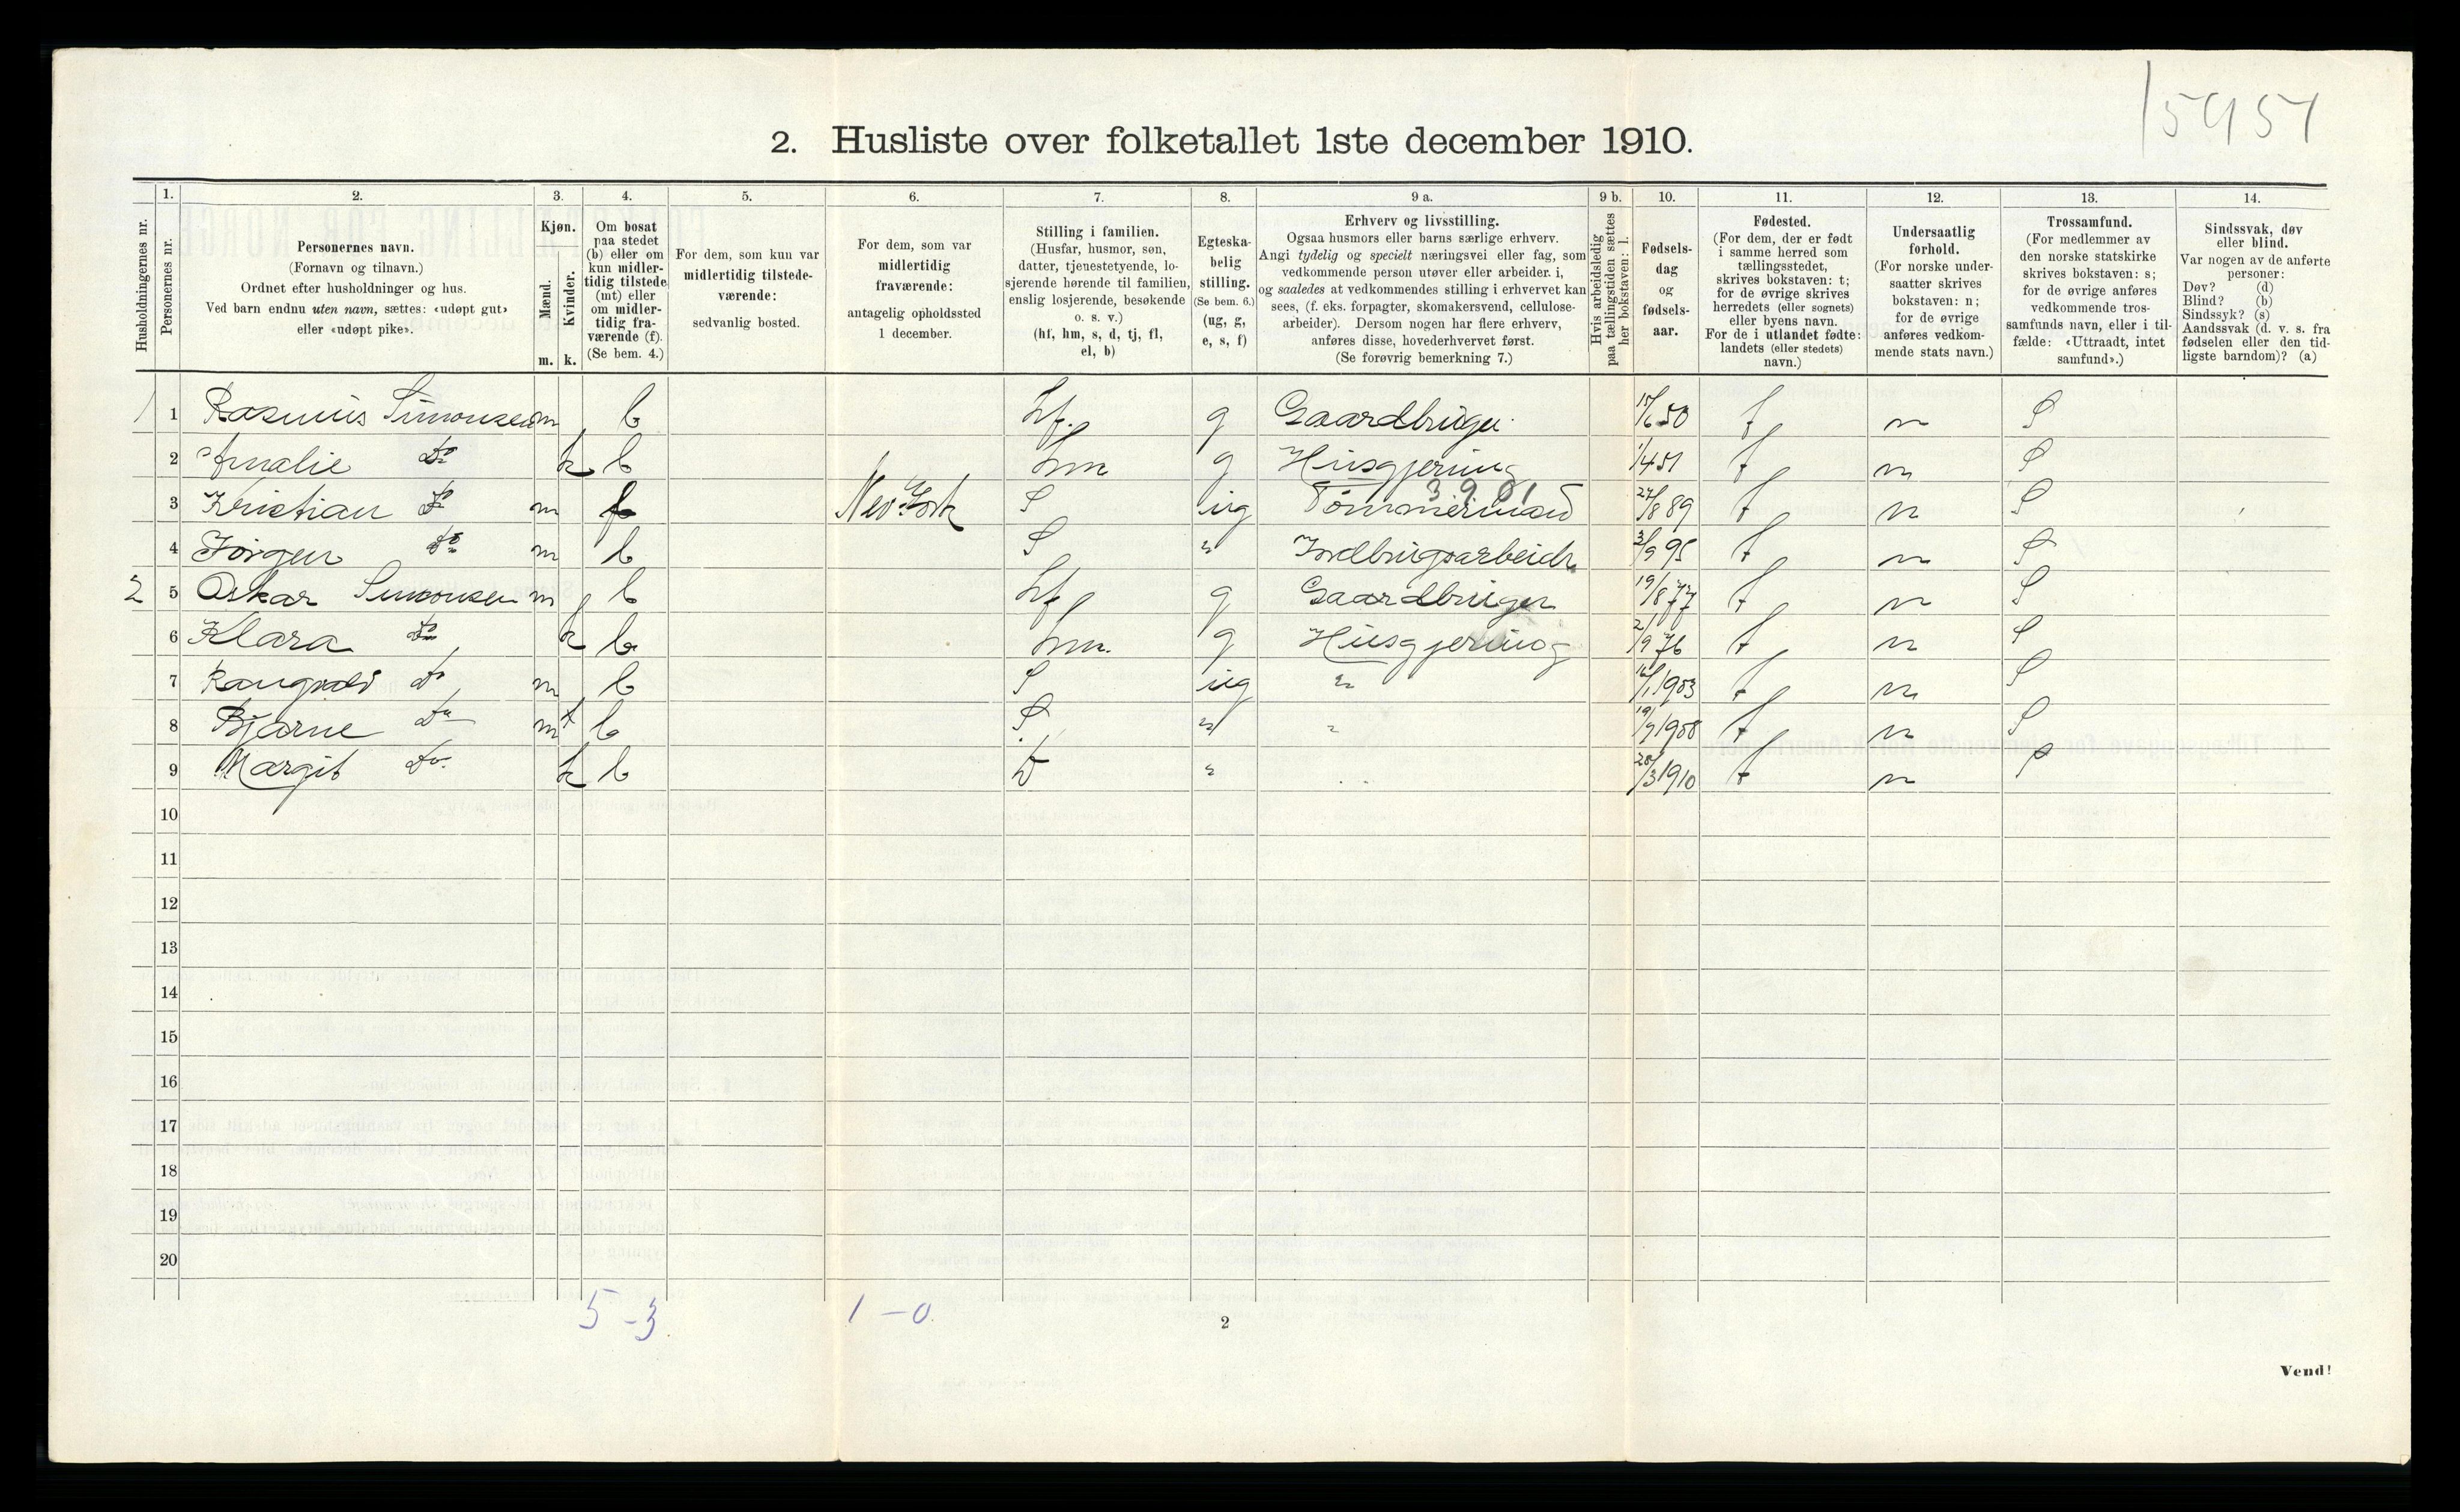 15951
2. Husliste over folketallet 1ste december 1910.
Husholdningernes nr.
1. Personernes nr.
2. Personernes navn. (Fornavn og tilnavn.) Ordnet efter husholdninger og hus. Ved barn endnu uten navn, sættes: «udøpt gut» eller «udøpt pike».
3. Kjøn. Mænd. m. Kvinder. k.
4. Om bosat paa stedet (b) eller om kun midlertidig tilstede (mt) eller om midlertidig fraværende (f). (Se bem. 4.)
5. For dem, som kun var midlertidig tilstedeværende: sedvanlig bosted.
6. For dem, som var midlertidig fraværende: antagelig opholdssted 1 december.
7. Stilling i familien. (Husfar, husmor, søn, datter, tjenestetyende, losjerende hørende til familien, enslig losjerende, besøkende o. s. v.) (hf, hm, s, d, tj, fl, el, b)
8. Egteskabelig stilling. (Se bem. 6.) (ug, g, e, s, f)
9 a. Erhverv og livsstilling. Ogsaa husmors eller barns særlige erhverv. Angi tydelig og specielt næringsvei eller fag, som vedkommende person utøver eller arbeider. i, og saaledes at vedkommendes stilling i erhvervet kan sees, (f. eks. forpagter, skomakersvend, cellulosearbeider). Dersom nogen har flere erhverv, anføres disse, hovederhvervet først. (Se forøvrig bemerkning 7.)
9 b. Hvis arbeidsledig paa tællingstiden sættes her bokstaven: l.
10. Fødselsdag og fødselsaar.
11. Fødested. (For dem, der er født i samme herred som tællingsstedet, skrives bokstaven: t; for de øvrige skrives herredets (eller sognets) eller byens navn. For de i utlandet fødte: landets (eller stedets) navn.)
12. Undersaatlig forhold. (For norske undersaatter skrives bokstaven: n; for de øvrige anføres vedkommende stats navn.)
13. Trossamfund. (For medlemmer av den norske statskirke skrives bokstaven: s; for de øvrige anføres vedkommende trossamfunds navn, eller i tilfælde: «Uttraadt, intet samfund».)
14. Sindssvak, døv eller blind. Var nogen av de anførte personer: Døv? (d) Blind? (b) Sindssyk? (s) Aandssvak (d. v. s. fra fødselen eller den tidligste barndom)? (a)
1 1 Rasmus Simonsen m b hf. g Gaardbruger 15/6 50 t n S
2 Amalie Do k b hm g Husgjerning 1/4 51 t n S
3 Kristian Do m f New York S ug Tømmermand 3901 27/8 89 t n S
4 Jørgen Do m b S " Jordbrugsarbeider 3/9 95 t n S
2 5 Oskar Simonsen m b hf g Gaardbruger 19/8 77 t n S
6 Klara Do k b hm. g Husgjerning 2/9 76 t n S
7 Rangvald Do m b S ug " 16/1 1903 t n S
8 Bjarne Do m b S " " 19/9 1908 t n S
9 Margit Do k b D " 28/3 1910 t n S
10
11
12
13
14
15
16
17
18
19
20
5-3. 1-0.
2
Vend!